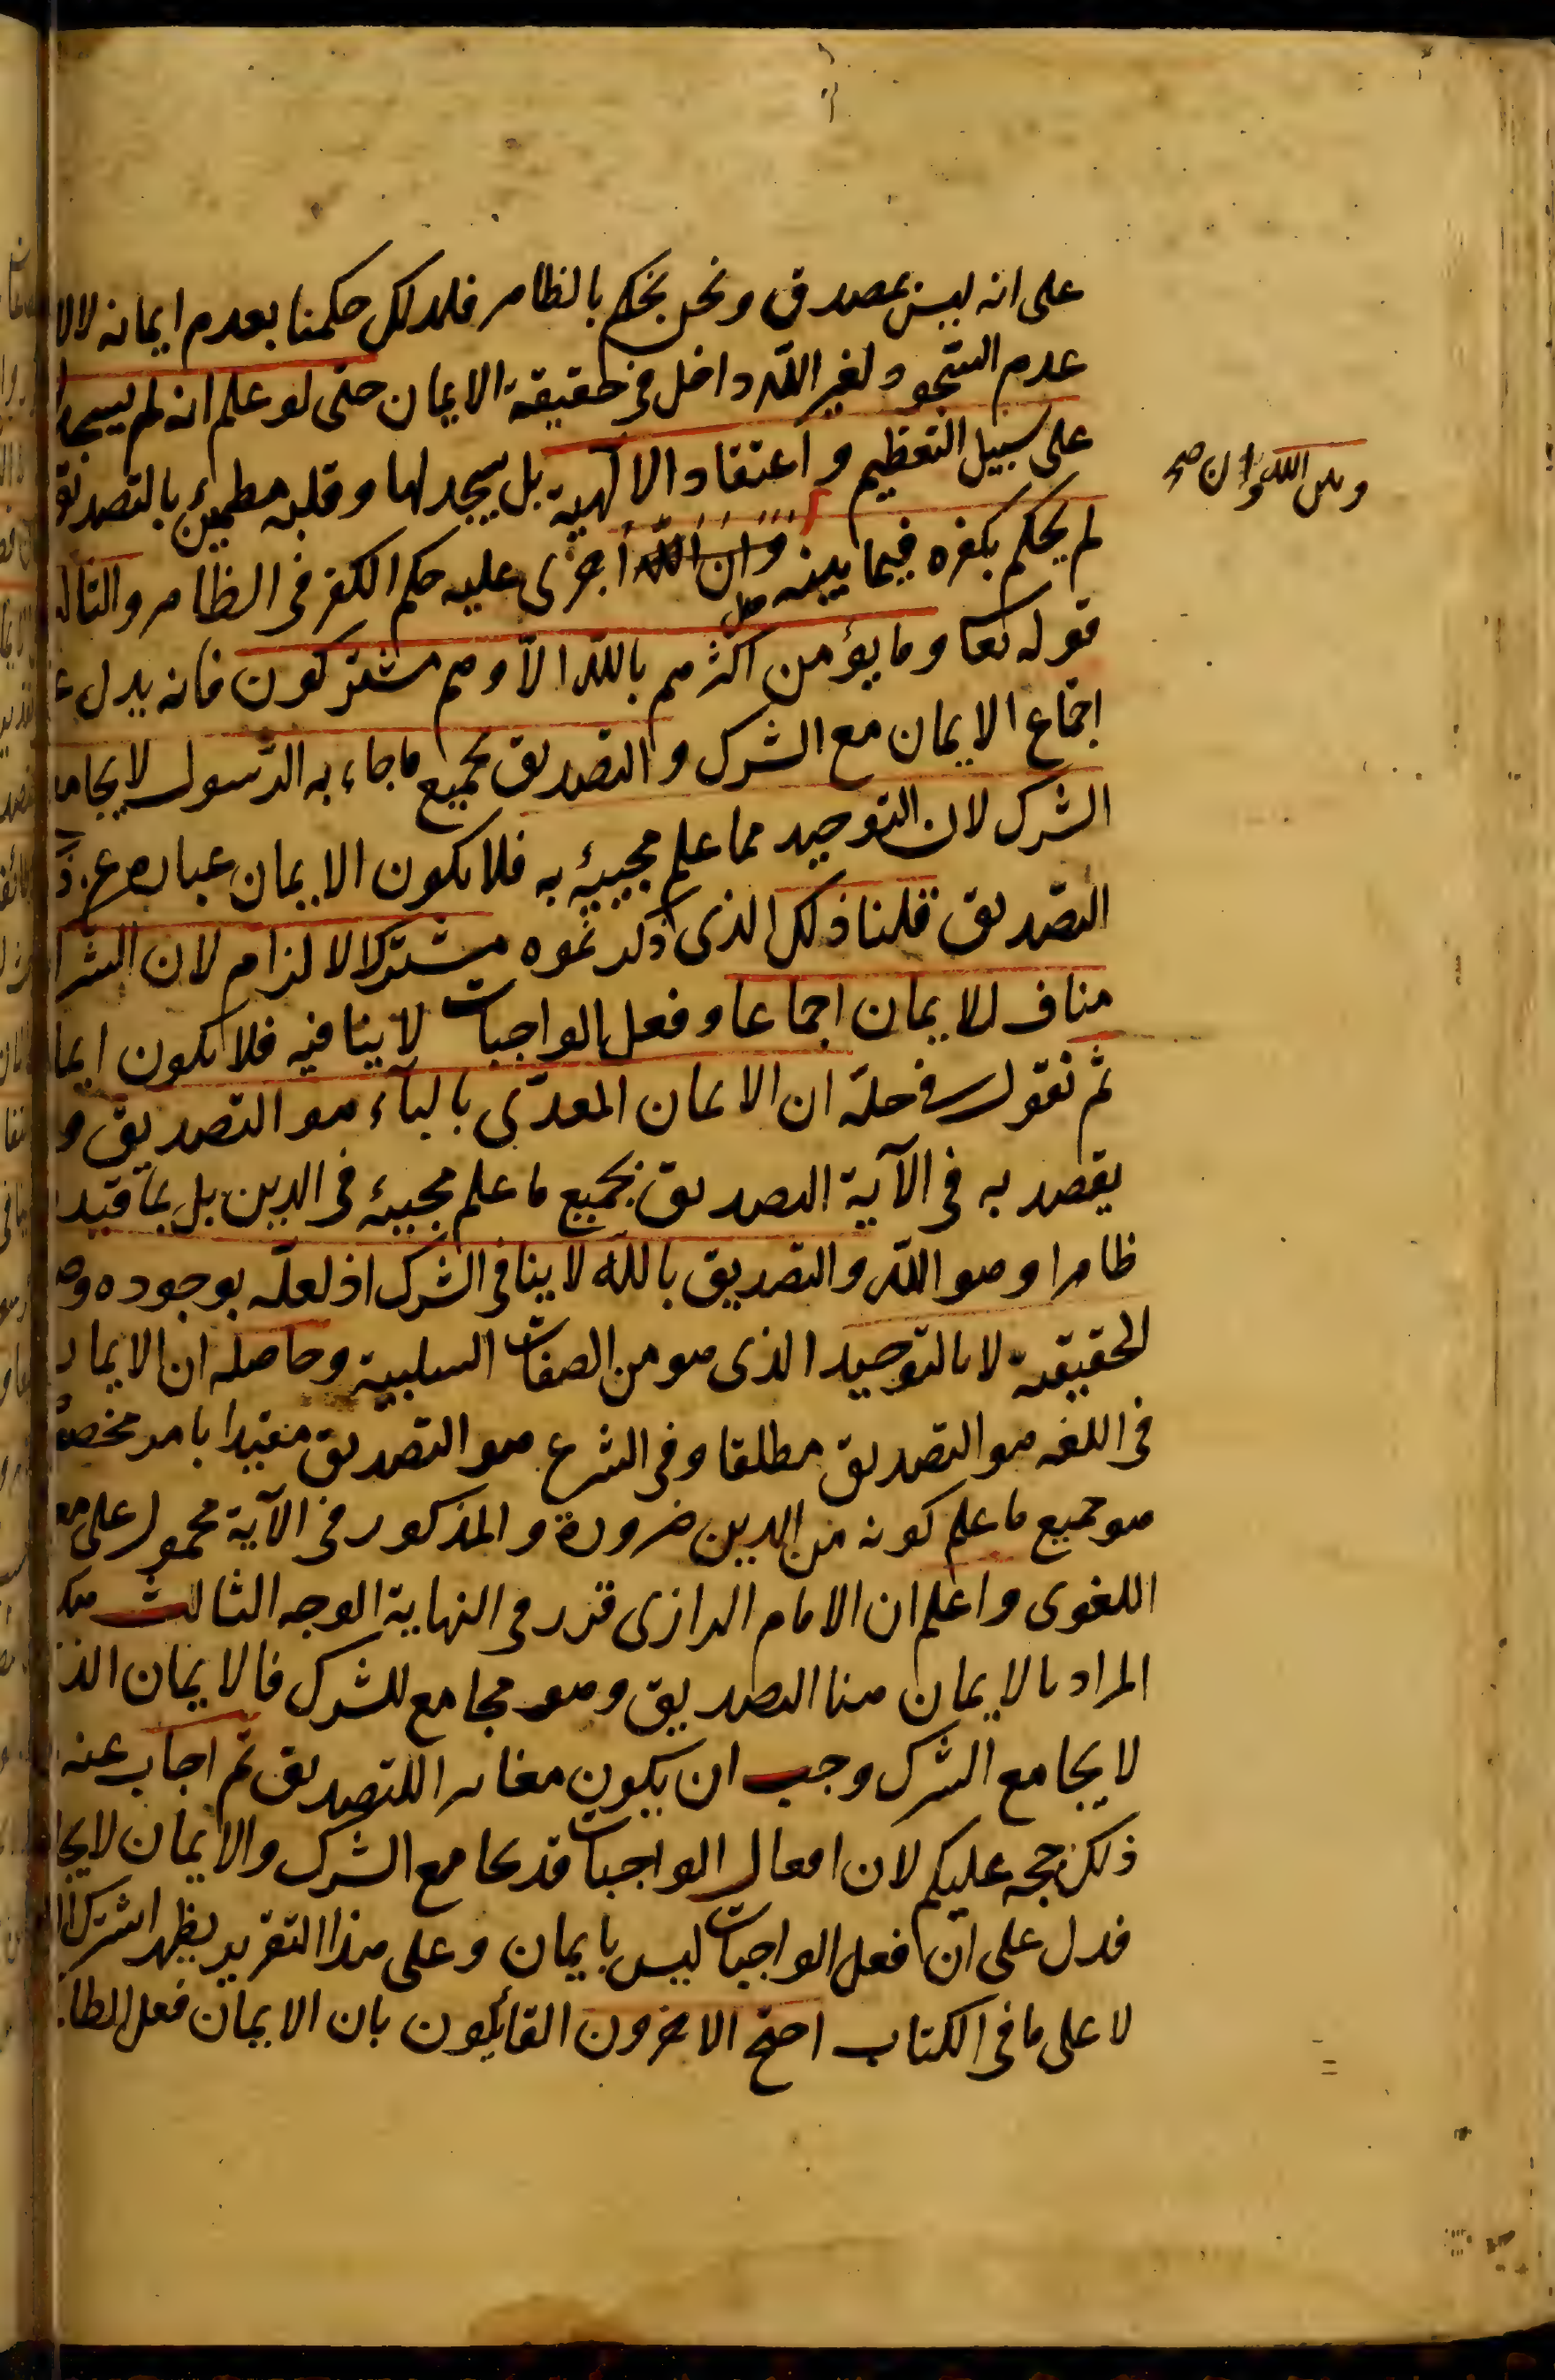 على انه ليس بمصدق ونحن نحكم بالظاهر فلذلك حكمنا بعدم ايمانه لا لا
عدم السجود لغير الله داخل فى حقيقة الايمان حتى لو علم انه لم يسجد
على سبيل التعظيم و اعتقاد الالهية بل سجد لها وقلبه مطمئن بالتصديق
وبين الله وان صح
لم يحكم بكفره فيما بينه وان الله اجرى عليه حكم الكفر فى الظاهر والثالث
قوله تعا وما يؤمن اكثرهم بالله الا وهم مشركون فانه يدل
اجتماع الايمان مع الشرك و التصديق بجميع ما جاء به الرسول لا يجامع
الشرك لان التوحيد مما علم مجيئه به فلا يكون الايمان عبارة عن
التصديق قلنا ذلك الذى ذكرتموه مشترك الالزام لان الشرك
مناف للايمان اجماعا وفعل الواجبات لا ينافيه فلا يكون ايما
ثم نقول فى حله ان الايمان المعدى بالباء هو التصديق و
يقصد به فى الآية التصديق بجميع ما علم مجيئه فى الدين بل بما قيد
ظاهرا وهو الله والتصديق بالله لا ينافى الشرك اذ لعله بوجوده وص
الحقيقية لا بالتوحيد الذى هو من الصفات السلبية وحاصله ان الايمان
فى اللغه هو التصديق مطلقا وفى الشرع هو التصديق مقيدا بامر مخصوص
هو جميع ما علم كونه من الدين ضرورة و المذكور فى الآية محمول على مع
اللغوى واعلم ان الامام الرازى قرر فى النهاية الوجه الثالث هكذا
المراد بالايمان هنا التصديق وهو مجامع للشرك فالايمان الذ
لا يجامع الشرك وجب ان يكون مغايرا للتصديق ثم اجاب عنه
ذلك حجه عليكم لان افعال الواجبات قد يجامع الشرك والايمان لا يجا
فدل على ان فعل الواجبات ليس بايمان وعلى هذا التقرير يظهر اشتراك
لا على ما فى الكتاب احتج الاخرون القائلون بان الايمان فعل الطا